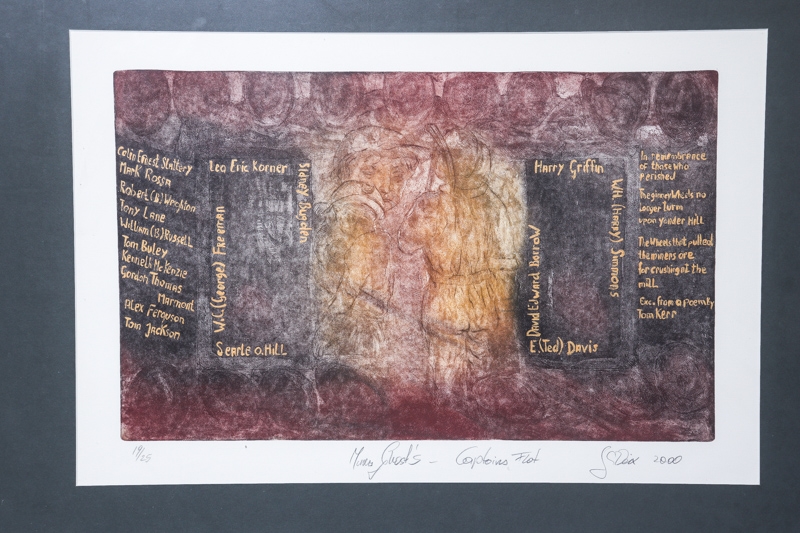 Colin Ernest Slattery
Mark Rossa
Robert (B) Wrighton
Tony Lane
William (B) Russell
Tom Buley
Kenneth McKenzie
Gordon Thomas
Marmont
Alex Ferguson
Tom Jackson
Leo Eric Korner
W.C. (George) Freeman
Sidney
Searle O. Hill
Harry Griffin
David Edward Barrow
W.H. (Harry) Simmons
E (Ted) Davis
In remembrence
of those who
perished
The ginny wheels no
longer turn
upon yonder Hill
The wheels that pulled
the miners ore
for crushing at the
mill.
Exc. from a poem by
Tom Kerr
19/25
Mine Ghost's - Captains Flat
Dix 2000